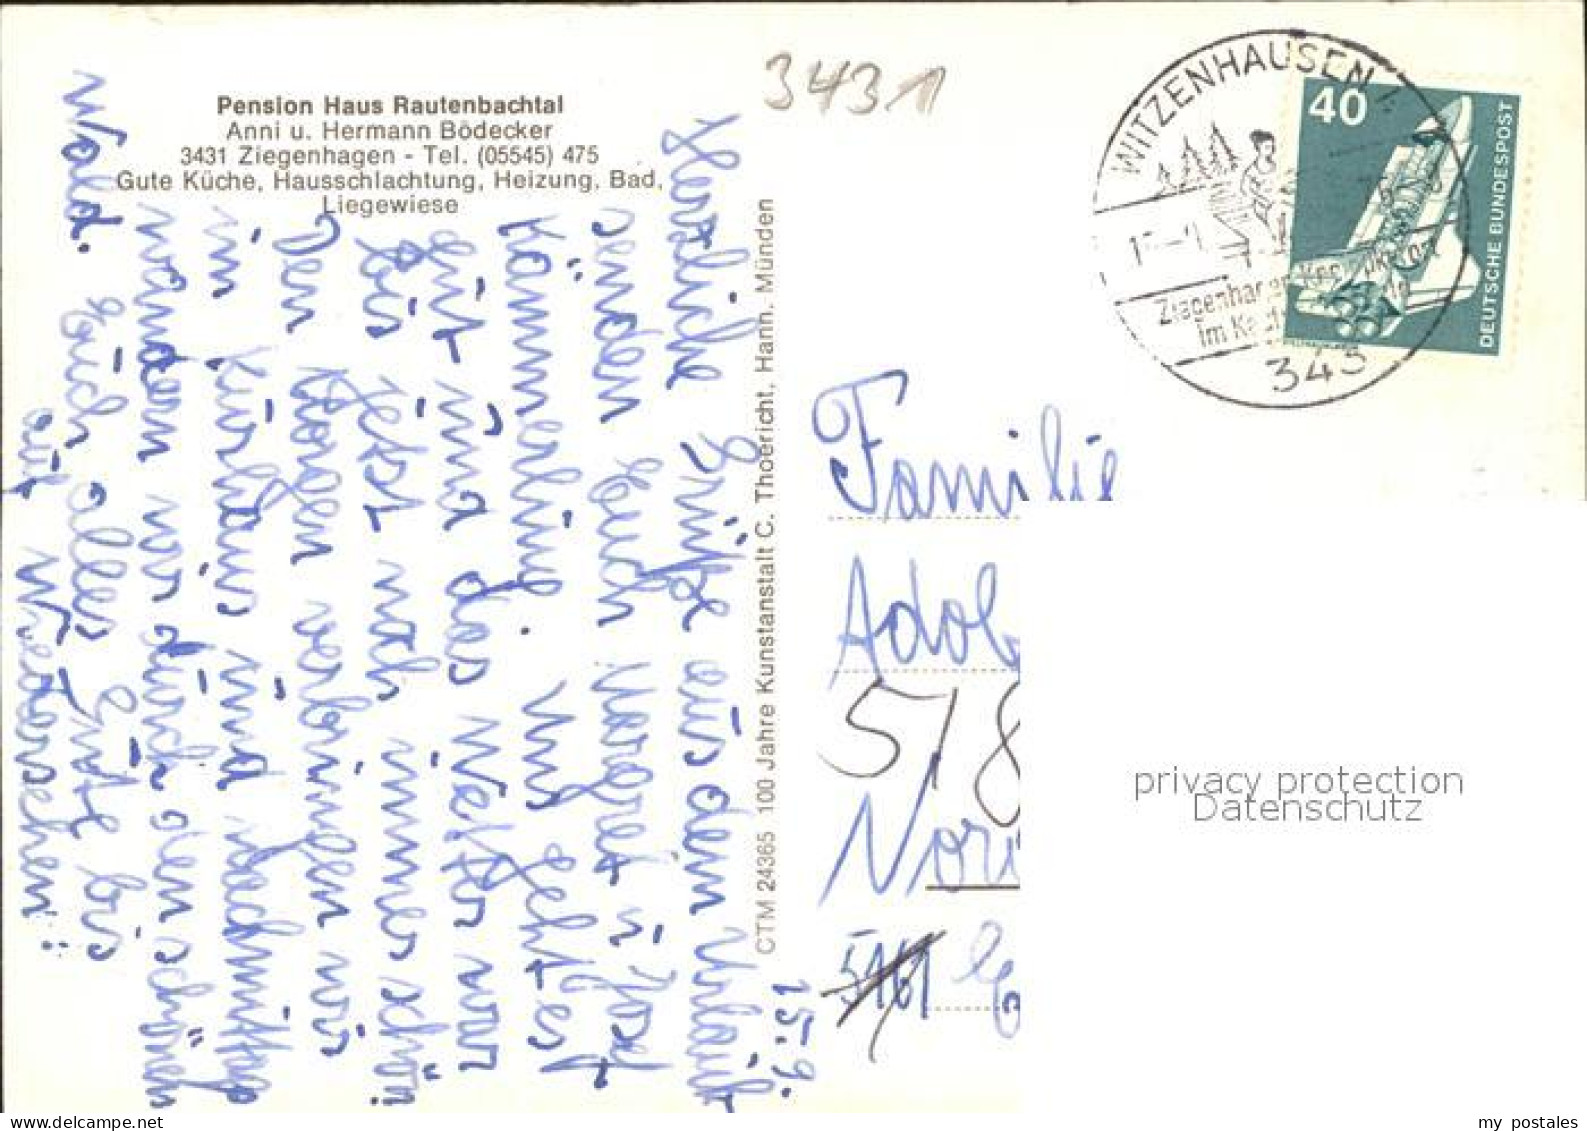 Pension Haus Rautenbachtal
Anni u. Hermann Bödecker
3431 Ziegenhagen - Tel. (05545) 475
Gute Küche, Hausschlachtung, Heizung, Bad,
Liegewiese
3431
WITZENHAUSEN 1
Ziegenhagen
im
343
40
DEUTSCHE BUNDESPOST
CTM 24365 100 Jahre Kunstanstalt C. Thoericht, Hann. Münden
15.9.
Herzliche Grüße aus dem Urlaub
senden Euch Margret u. Josef
Kämmerling. Uns geht es
gut und das Wetter war
bis jetzt noch immer schön
Den Morgen verbringen wir
im Kurhaus und nachmittag
wandern wir durch den schönen
Wald. Euch alles Gute bis
auf Wiedersehen!
Familie
Adol
518
Nor
5161
privacy protection
Datenschutz
delcampe.net
my_postales